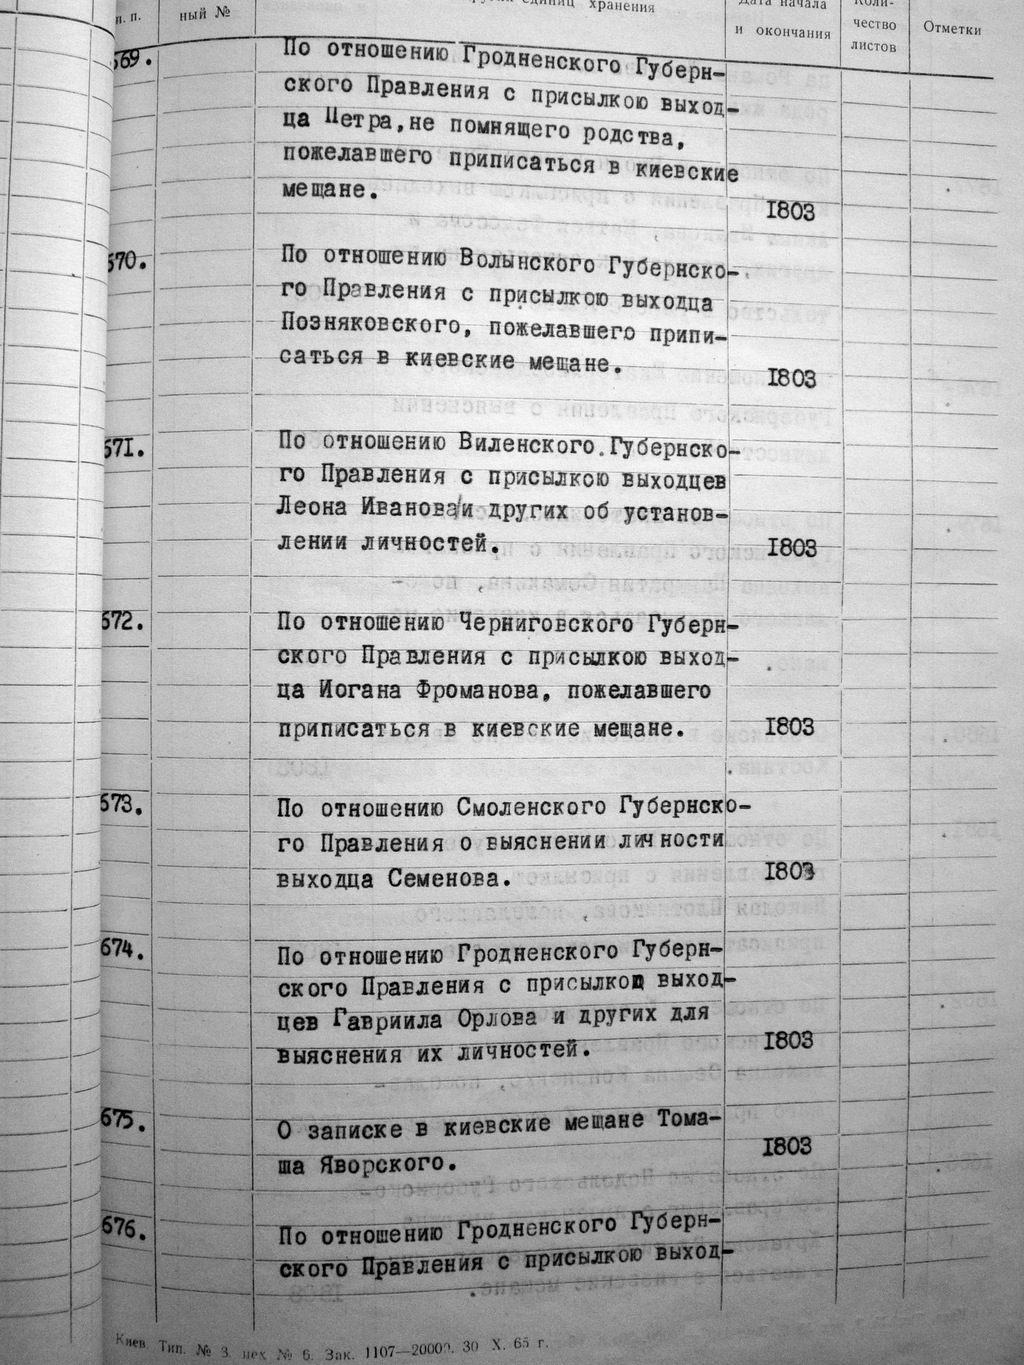 п. п.
ный №
единиц хранения
Дата начала
и окончания
Коли-
чество
листов
Отметки
669.
По отношению Гродненского Губерн-
ского Правления с присылкою выход-
ца Петра,не помнящего родства,
пожелавшего приписаться в киевские
мещане.
1803
670.
По отношению Волынского Губернско-
го Правления с присылкою выходца
Позняковского, пожелавшего припи-
саться в киевские мещане.
1803
671.
По отношению Виленского.Губернско-
го Правления с присылкою выходцев
Леона Иванова/и других об установ-
лении личностей.
1803
672.
По отношению Черниговского Губерн-
ского Правления с присылкою выход-
ца Иогана Фроманова, пожелавшего
приписаться в киевские мещане.
1803
673.
По отношению Смоленского Губернско-
го Правления о выяснении личности
выходца Семенова.
1803
674.
По отношению Гродненского Губерн-
ского Правления с присылкою выход-
цев Гавриила Орлова и других для
выяснения их личностей.
1803
675.
О записке в киевские мещане Тома-
ша Яворского.
1803
676.
По отношению Гродненского Губерн-
ского Правления с присылкою выход-
Киев. Тип. № 3. цех № 6. Зак. 1107—20000. 30 X. 65 г.